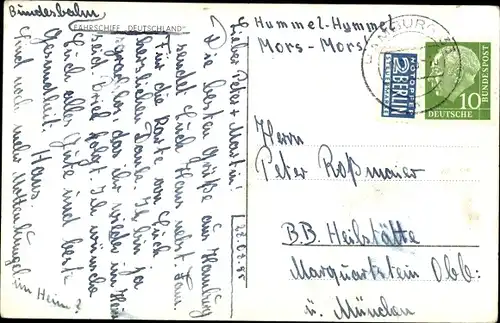 Bundesbahn
FÄHRSCHIFF „DEUTSCHLAND"
Lieber Peter + Martin!
Die besten Grüße aus Hamburg
sendet Euch Hans nebst Fam.
Für die Karte von Euch
herzlichen Dank. Ich bin ja
sprachlos, das ihr wieder im Heim
seid. Brief folgt. Ich wünsche
Euch alles Gute und beste
Gesundheit. Hans.
Sind noch mehr
im Heim?
Hummel-Hummel
Mors-Mors
NOTOPFER
2 BERLIN
STEUERMARKE
10
DEUTSCHE
BUNDESPOST
Herrn
Peter Roßmaier
B.B. Heilstätte
Marquartstein Obb:
ü. München